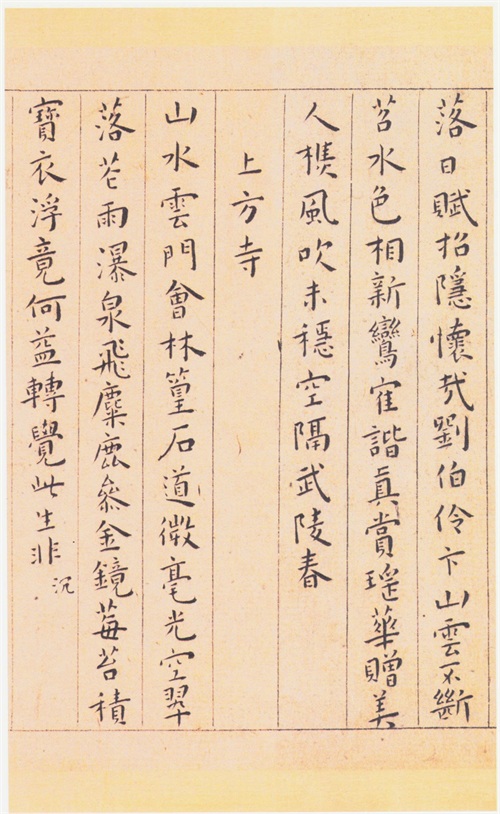 落日賦招隱懷哉劉伯伶卞山雲不斷
苕水色相新鸞寉諧真賞瑶華贈美
人樵風吹未穩空隔武陵春
上方寺
山水雲門會林篁石道微毫光空翠
落花雨瀑泉飛麋鹿叅金鏡莓苔積
寶衣浮竟何益轉覺此生非
沉